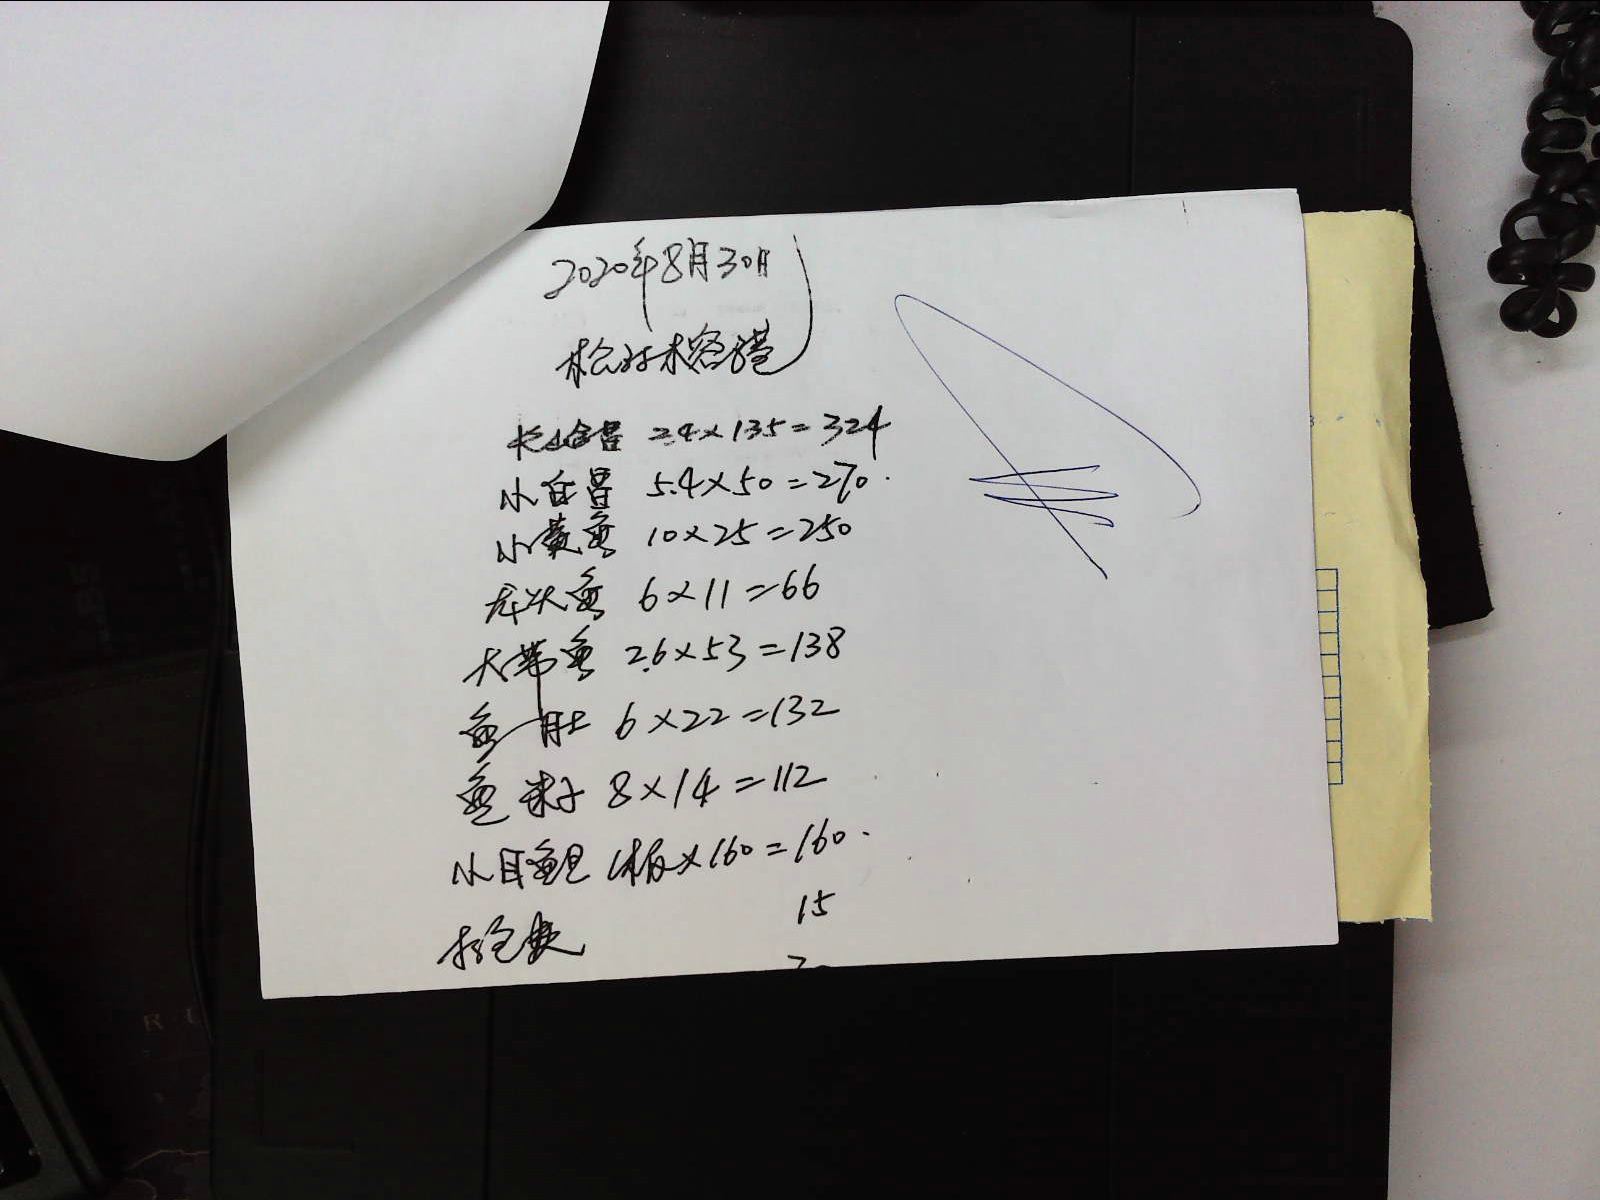 2020年8月30日
2.4×135=324
小白昌 5.4×50=270.
小黄鱼 10×25=250
龙头鱼 6×11=66
大带鱼 2.6×53=138
鱼肚 6×22=132
鱼籽 8×14=112
小目鱼 1板×160=160.
15